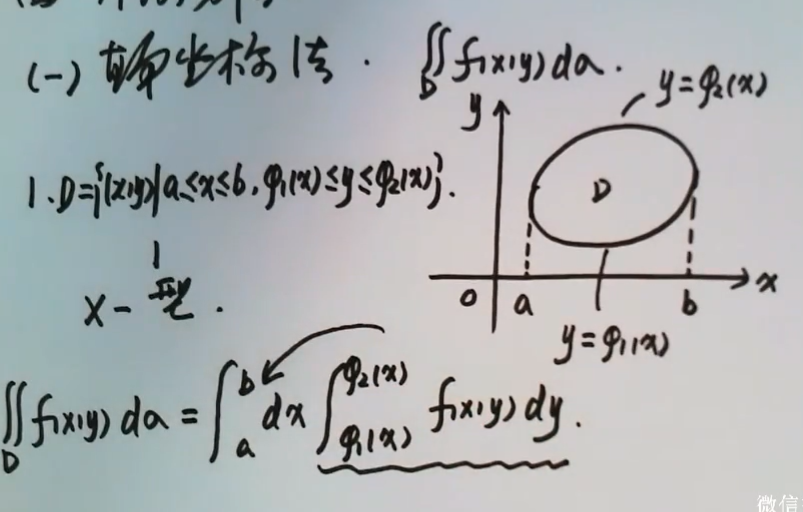 (一) 直角坐标法. ∬_D f(x,y)dσ.
y=φ₂(x)
y
1. D={(x,y)|a≤x≤b, φ₁(x)≤y≤φ₂(x)}.
D
X-型.
o a b x
y=φ₁(x)
∬_D f(x,y)dσ = ∫_a^b dx ∫_{φ₁(x)}^{φ₂(x)} f(x,y)dy.
微信